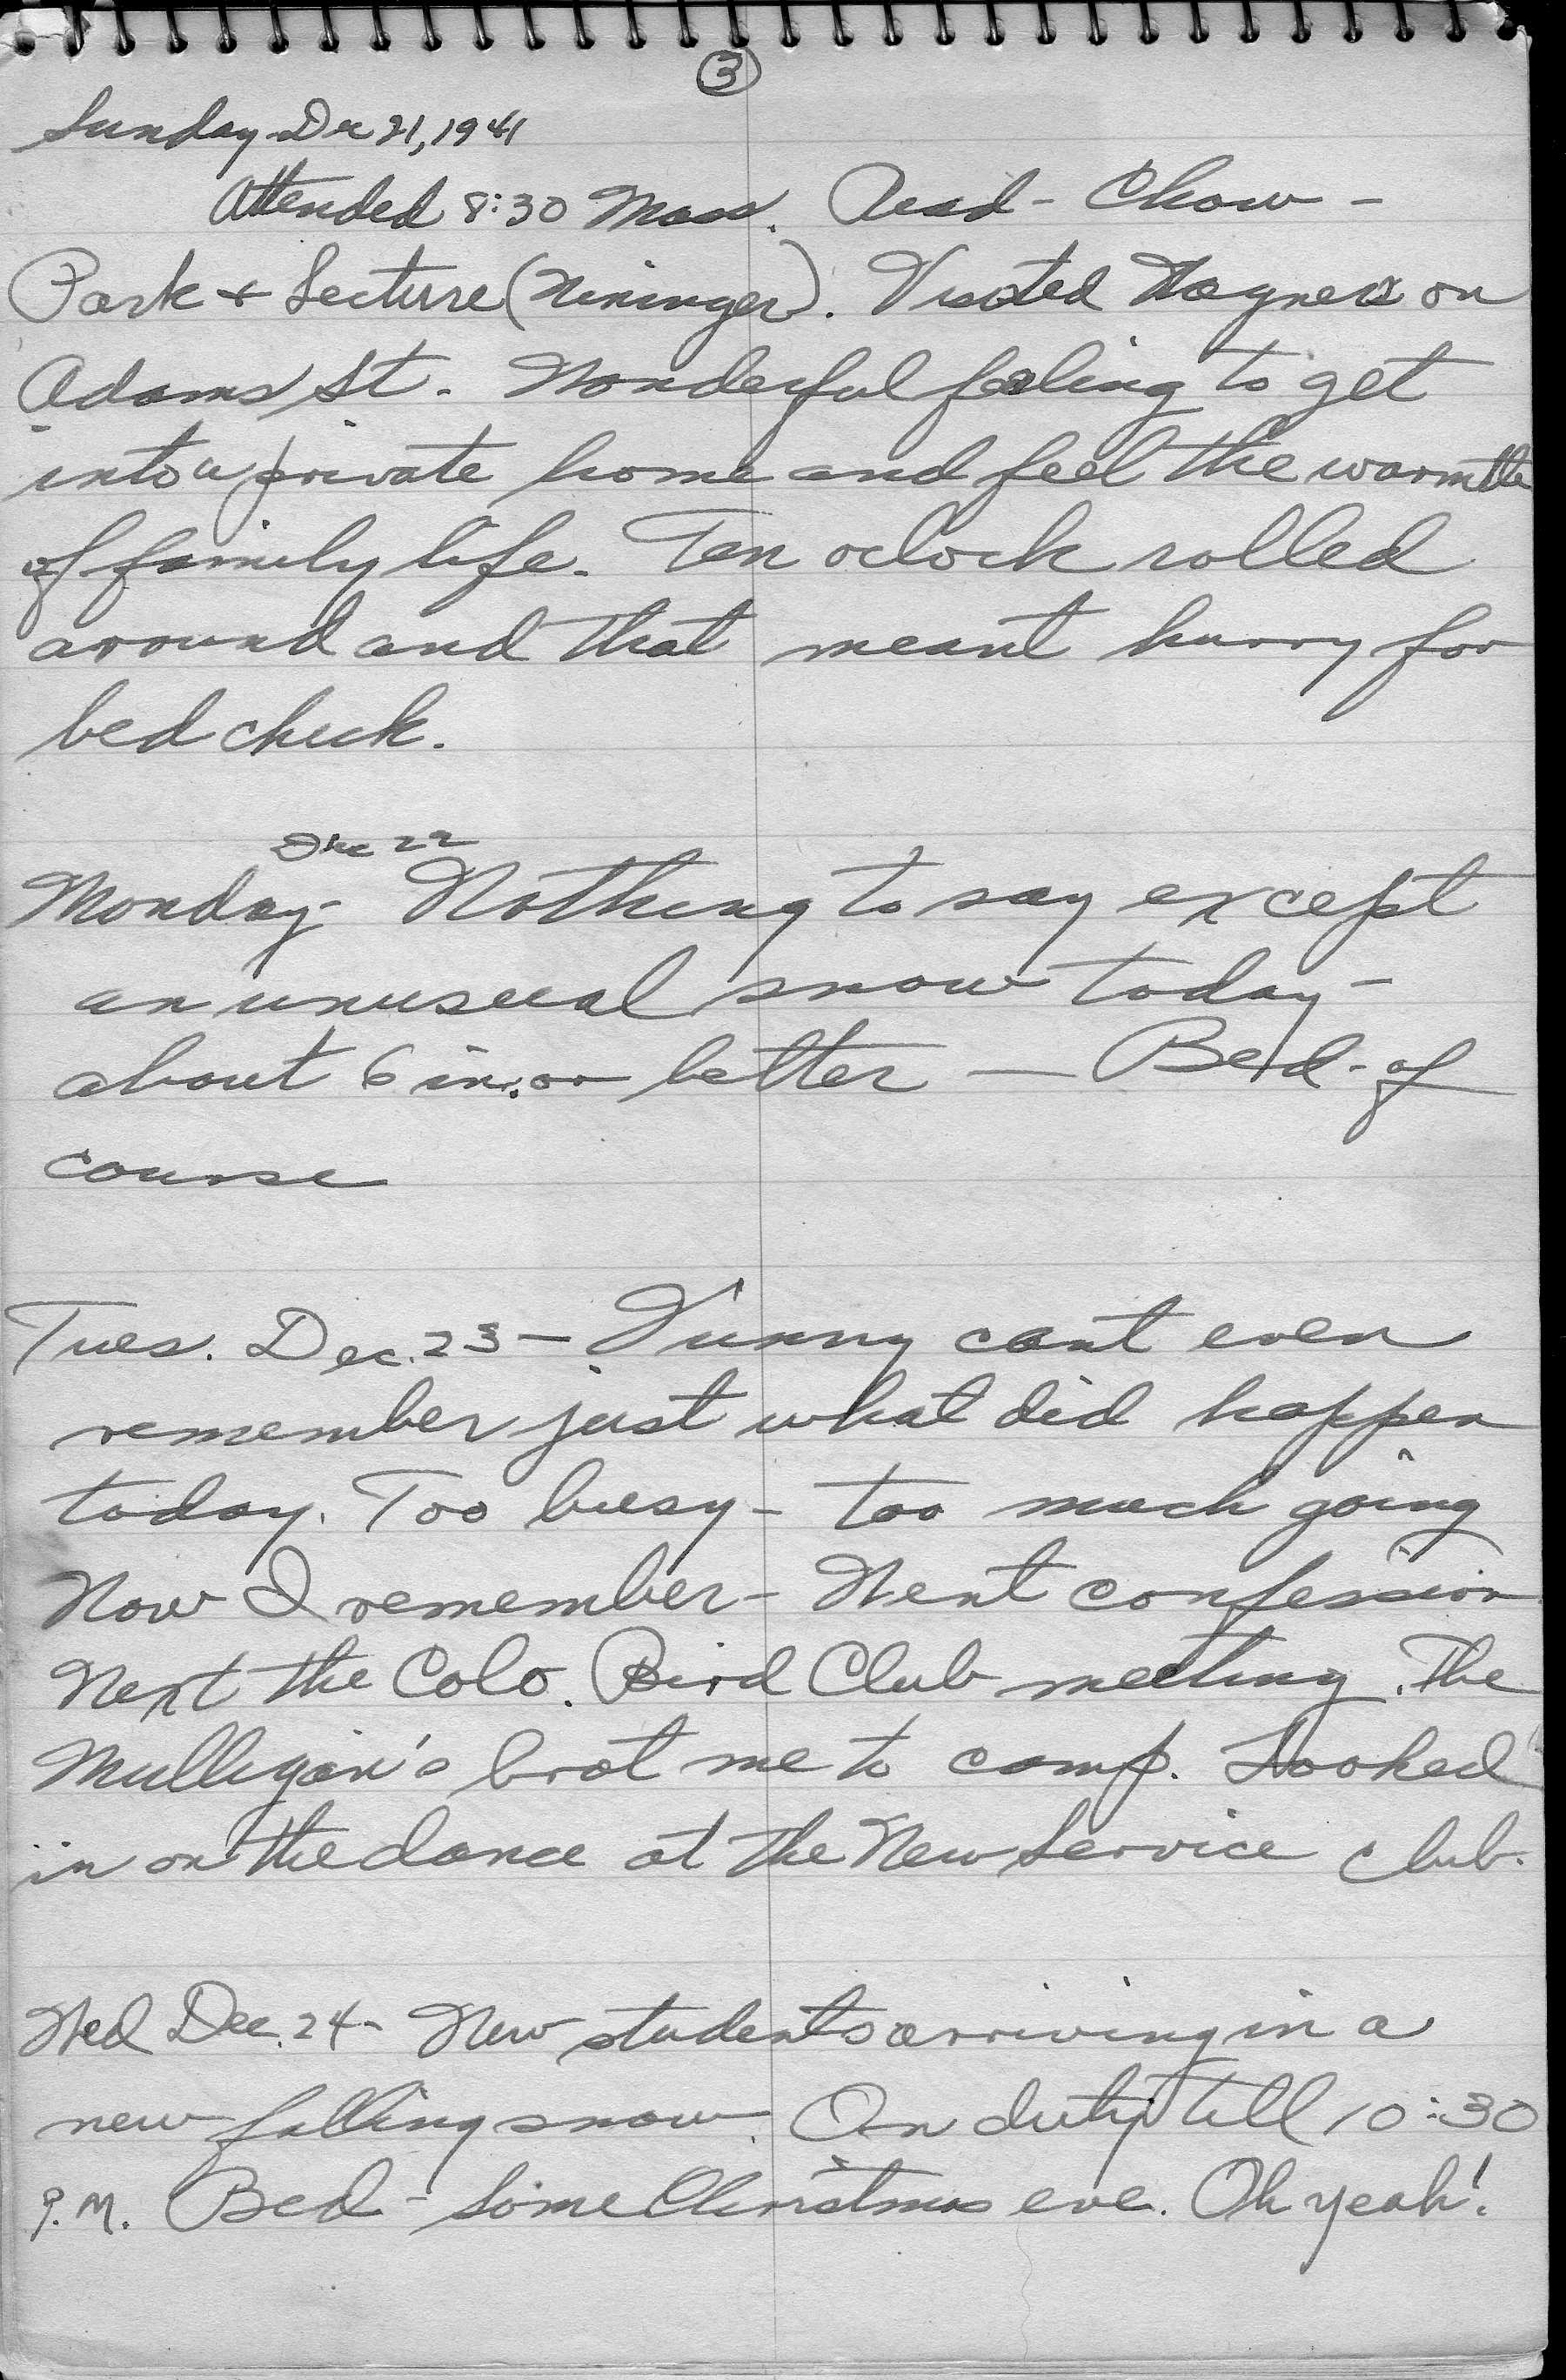 3
Sunday Dec 21, 1941
Attended 8:30 Mass. Read - Chow -
Park + Lecture (Nininger). Visited Wagners on
Adams St. Wonderful feeling to get
into a private home and feel the warmth
of family life. Ten oclock rolled
around and that meant hurry for
bed check.
Dec 22
Monday - Nothing to say except
an unusual snow today -
about 6 in. or better — Bed - of
course
Tues. Dec. 23 - Funny cant even
remember just what did happen
today. Too busy - too much going
Now I remember - Went confession
Next the Colo. Bird Club meeting. The
Mulligan's brot me to camp. Looked
in on the dance at the New Service Club.
Wed Dec. 24 - New students arriving in a
new falling snow. On duty till 10:30
P.M. Bed - Some Christmas eve. Oh yeah!